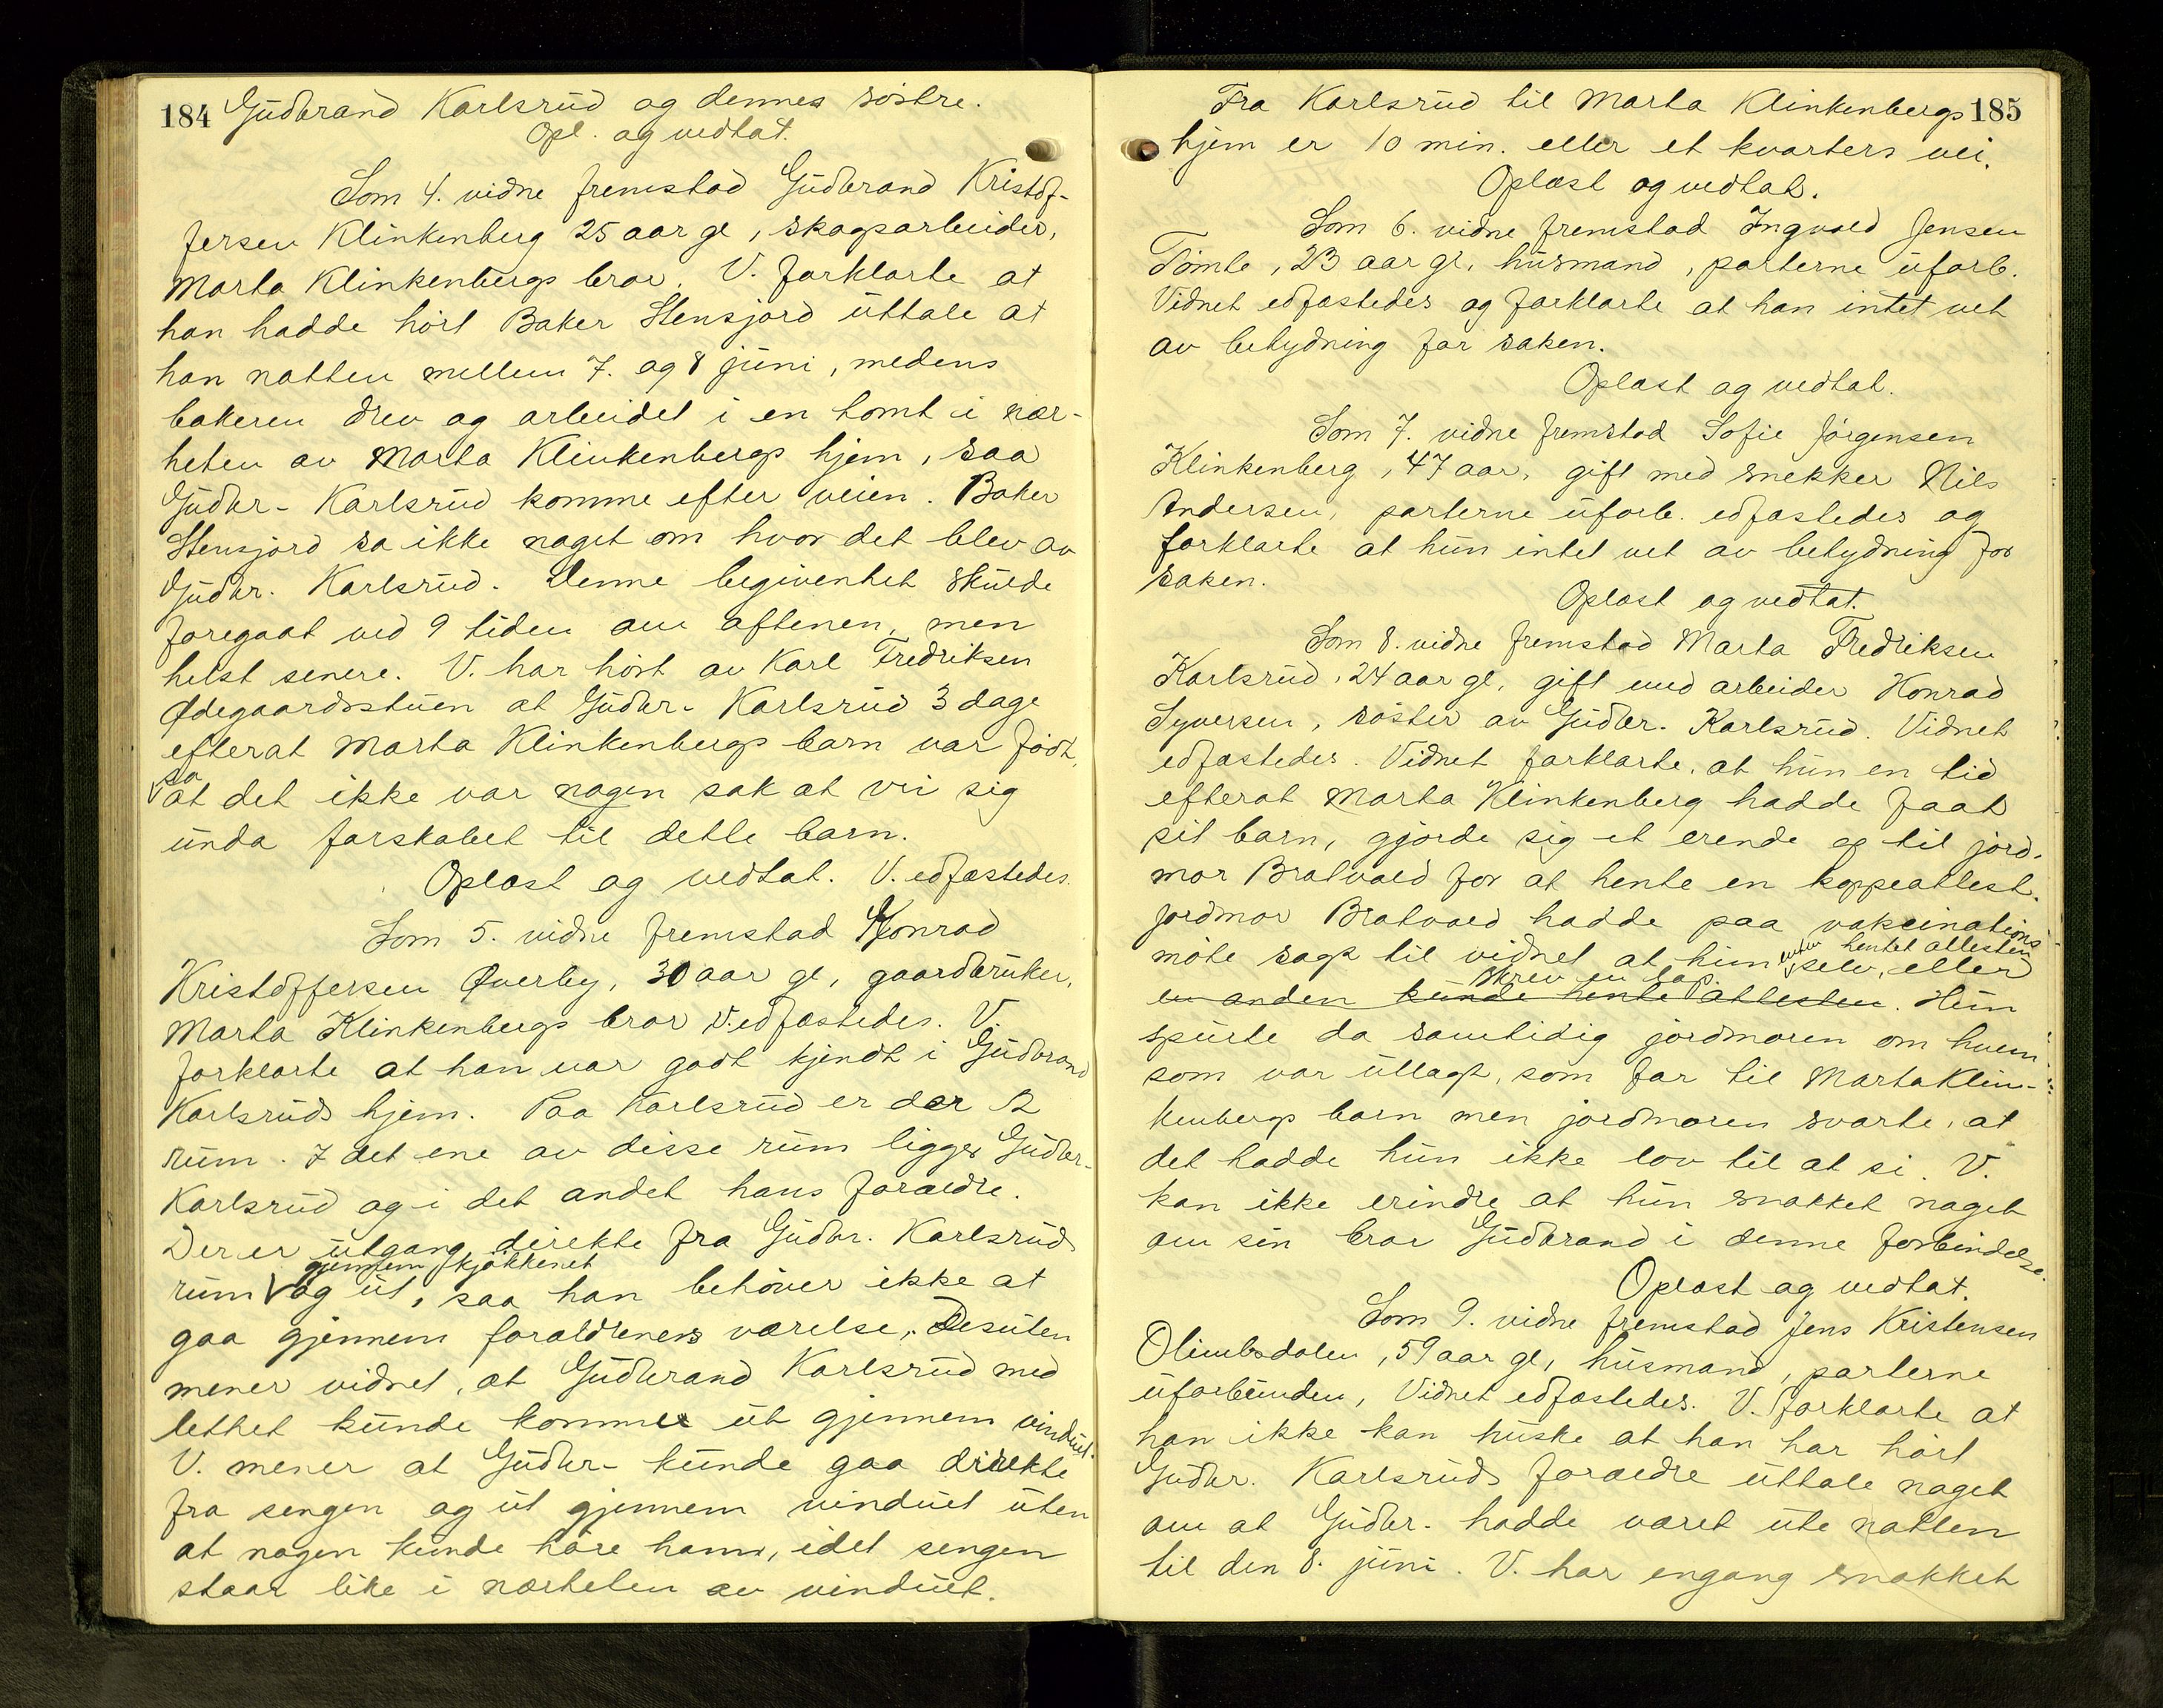 184
Gudbrand Karlsrud og dennes søstre.
Opl. og vedtat.
Som 4. vidne fremstod Gudbrand Kristof-
fersen Klinkenberg 25 aar gl, skogsarbeider,
Marta Klinkenbergs bror. V. forklarte at
han hadde hørt Baker Stensjord uttale at
han natten mellem 7. og 8 juni, medens
bakeren drev og arbeidet i en tomt i nær-
heten av Marta Klinkenbergs hjem, saa
Gudbr. Karlsrud komme efter veien. Baker
Stensjord sa ikke noget om hvor det blev av
Gudbr. Karlsrud. Denne begivenhet skulde
foregaat ved 9 tiden om aftenen, men
helst senere. V. har hørt av Karl Fredriksen
Ødegaardsstuen at Gudbr. Karlsrud 3 dage
efterat Marta Klinkenbergs barn var født,
sa
at det ikke var nogen sak at vri sig
unda farskabet til dette barn.
Oplæst og vedtat. V. edfæstedes.
Som 5. vidne fremstod Konrad
Kristoffersen Øverby, 30 aar gl, gaardbruker,
Marta Klinkenbergs bror V. edfæstedes. V.
forklarte at han var godt kjendt i Gudbrand
Karlsruds hjem. Paa Karlsrud er der 2
rum. I det ene av disse rum ligger Gudbr.
Karlsrud og i det andet hans forældre.
Der er utgang direkte fra Gudbr. Karlsruds
gjennem kjøkkenet
rum og ut, saa han behøver ikke at
gaa gjennem forældrenes værelse. Desuten
mener vidnet, at Gudbrand Karlsrud med
lethet kunde komme ut gjennem vinduet.
V. mener at Gudbr. kunde gaa direkte
fra sengen og ut gjennem vinduet uten
at nogen kunde høre ham, idet sengen
staar like i nærheten av vinduet.
185
Fra Karlsrud til Marta Klinkenbergs
hjem er 10 min. eller et kvarters vei.
Oplæst og vedtat.
Som 6. vidne fremstod Ingvald Jensen
Tømte, 23 aar gl, husmand, parterne uforb.
Vidnet edfæstedes og forklarte at han intet vet
av betydning for saken.
Oplæst og vedtat.
Som 7. vidne fremstod Sofie Jørgensen
Klinkenberg, 47 aar, gift med snekker Nils
Andersen, parterne uforb. edfæstedes og
forklarte at hun intet vet av betydning for
saken.
Oplæst og vedtat.
Som 8. vidne fremstod Marta Fredriksen
Karlsrud, 24 aar gl, gift med arbeider Konrad
Syversen, søster av Gudbr. Karlsrud. Vidnet
edfæstedes. Vidnet forklarte, at hun en tid
efterat Marta Klinkenberg hadde faat
sit barn, gjorde sig et erende op til jord-
mor Bratvold for at hente en koppeattest.
Jordmor Bratvold hadde paa vakcinations-
møte sagt til vidnet at hun enten hentet attesten
selv, eller
skrev en lap.
en anden kunde hente attesten. Hun
spurte da samtidig jordmoren om hvem
som var utlagt, som far til Marta Klin-
kenbergs barn men jordmoren svarte, at
det hadde hun ikke lov til at si. V.
kan ikke erindre at hun snakket noget
om sin bror Gudbrand i denne forbindelse.
Oplæst og vedtat.
Som 9. vidne fremstod Jens Kristensen
Olimbsdalen, 59 aar gl, husmand, parterne
uforbunden, Vidnet edfæstedes. V. forklarte at
han ikke kan huske at han har hørt
Gudbr. Karlsruds forældre uttale noget
om at Gudbr. hadde været ute natten
til den 8. juni. V. har engang snakket